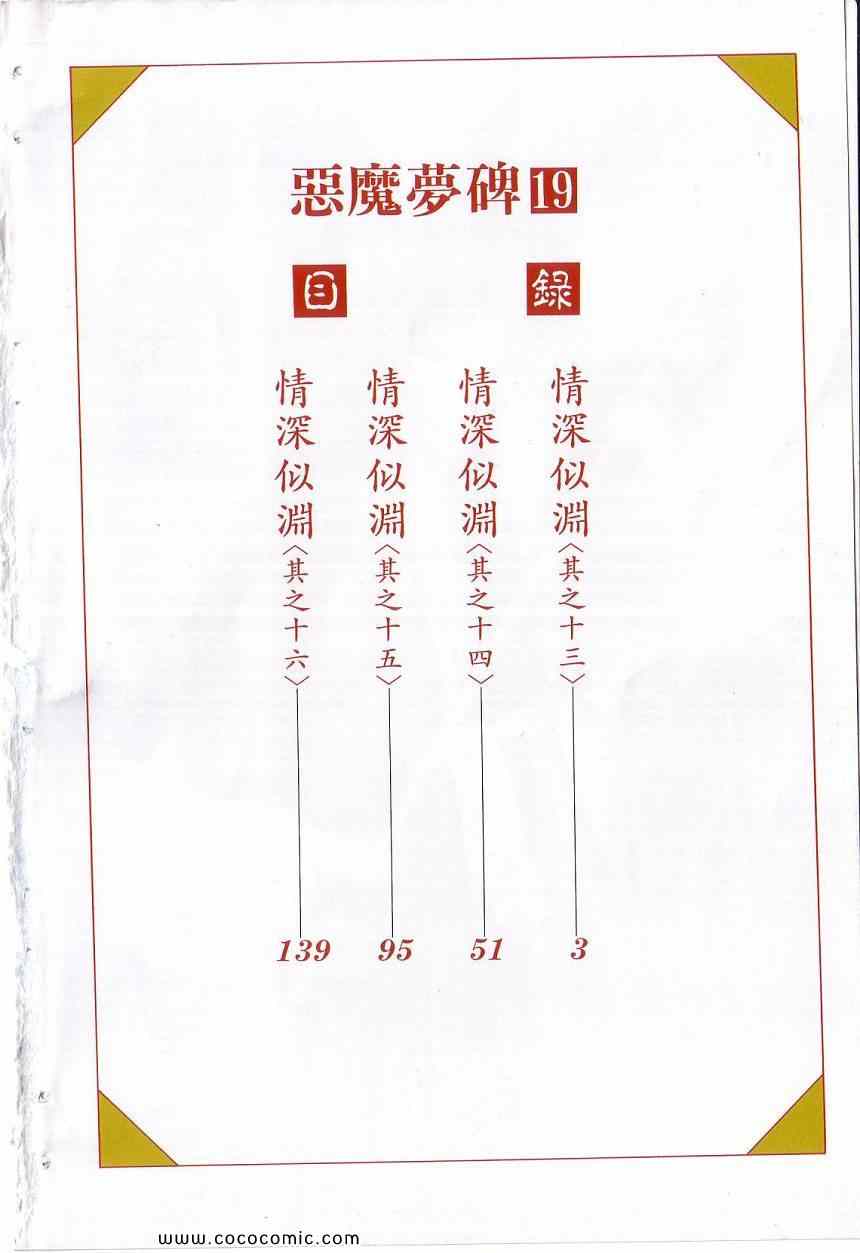 惡魔夢碑19
目錄
情深似淵〈其之十三〉3
情深似淵〈其之十四〉51
情深似淵〈其之十五〉95
情深似淵〈其之十六〉139
www.cococomic.com